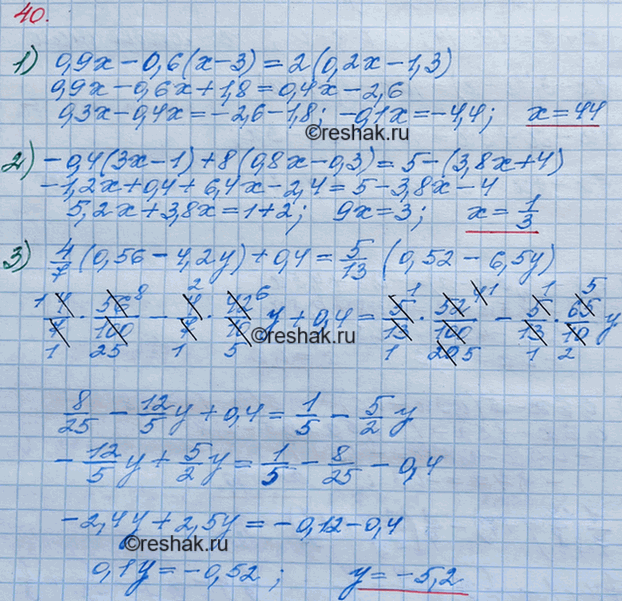 40.
1) 0,9x-0,6(x-3)=2(0,2x-1,3)
0,9x-0,6x+1,8=0,4x-2,6
0,3x-0,4x=-2,6-1,8; -0,1x=-4,4; x=44
©reshak.ru
2) -0,4(3x-1)+8(0,8x-0,3)=5-(3,8x+4)
-1,2x+0,4+6,4x-2,4=5-3,8x-4
5,2x+3,8x=1+2; 9x=3; x=1/3
3) 4/7 (0,56-4,2y)+0,4=5/13 (0,52-6,5y)
1 4/7 1 · 56 8/100 25 - 4 2/7 1 · 42 6/10 5 y+0,4= 5 1/13 1 · 52 4 1/100 20 5 - 5 1/13 1 · 65 5/10 2 y
©reshak.ru
8/25 - 12/5 y+0,4= 1/5 - 5/2 y
- 12/5 y+ 5/2 y= 1/5 - 8/25 -0,4
-2,4y+2,5y=-0,12-0,4
©reshak.ru
0,1y=-0,52; y=-5,2